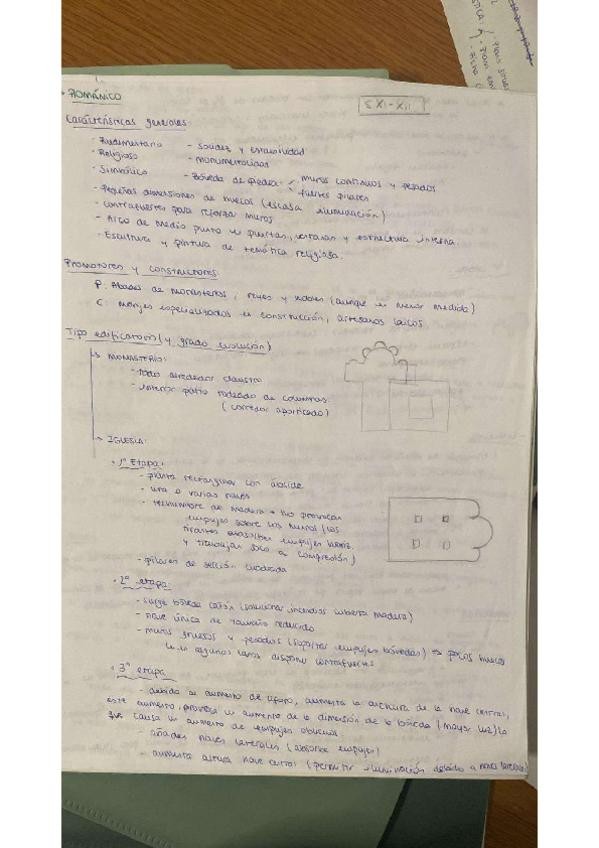 ROMÁNICO
S XI-XII
Características generales:
- Rudimentario - Solidez y estabilidad
- Religioso - monumentalidad
- Simbólico - Bóveda de piedra: muros continuos y pesados
fuertes pilares
- Pequeñas dimensiones de huecos (escasa iluminación)
- Contrafuertes para reforzar muros
- Arco de medio punto en puertas, ventanas y estructura interna.
- Escultura y pintura de temática religiosa.
Promotores y constructores
P: Abades de monasterios, reyes y nobles (aunque en menor medida)
C: Monjes especializados en construcción, artesanos laicos
Tipo edificatorio (y grado evolución)
→ MONASTERIO:
- todo alrededor claustro
- interior patio rodeado de columnas
(corredor aporticado)
→ IGLESIA:
· 1ª Etapa:
- planta rectangular con ábside
- una o varias naves
- techumbre de madera → No provocan
empujes sobre los muros (los
tirantes absorben empujes horiz.
y trabajan solo a compresión)
- pilares de sección cuadrada
· 2ª etapa:
- surge bóveda cañón (solucionar incendios cubierta madera)
- nave única de tamaño reducido
- muros gruesos y pesados (soportar empujes bóvedas) → pocos huecos
en algunos casos disponen contrafuertes
· 3ª etapa
- debido al aumento de aforo, aumenta la anchura de la nave central,
este aumento, provoca un aumento de la dimensión de la bóveda (mayor luz) lo
que causa un aumento de empujes oblicuos.
- añaden naves laterales (absorbe empujes)
- aumenta altura nave central (permitir iluminación debido a naves laterales)